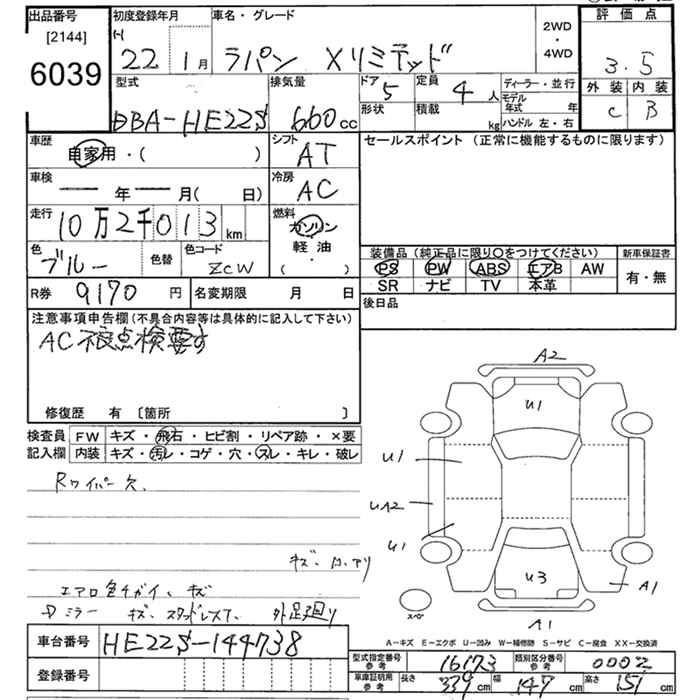 出品番号 初度登録年月 車名・グレード 2WD・4WD 評価点
[2144] (-)
6039 22 1月 ラパン Xリミテッド 3.5
型式 排気量 ドア 定員 ディーラー・並行 外装 内装
5 4人 モデル年式 年
DBA-HE22S 660cc 形状 積載 kg ハンドル 左・右 C B
車歴 シフト セールスポイント (正常に機能するものに限ります)
自家用・( ) AT
車検 冷房
年 月( 日) AC
走行 燃料
10万2千013km ガソリン
軽油
色 色替 色コード 装備品 (純正品に限り○をつけてください) 新車保証書
ブルー ZCW ・( ) PS PW ABS エアB AW 有・無
SR ナビ TV 本革
R券 9170円 名変期限 月 日 後日品
注意事項申告欄(不具合内容等は具体的に記入して下さい)
AC不良点検要す
修復歴 有 〔箇所 〕
検査員 FW キズ・飛石・ヒビ割・リペア跡・×要
記入欄 内装 キズ・汚レ・コゲ・穴・スレ・キレ・破レ
Rワイパー欠、
エアロ色チガイ、キズ
ミラー キズ、スタッドレスT、
A2
U1
U1
UA2
U1
U3
A1
A1
スペア
A-キズ E-エクボ U-凹み W-補修跡 S-サビ C-腐食 XX-交換済
車台番号 HE22S-144738
登録番号
型式指定番号 参考 16173 類別区分番号 参考 0002
車庫証明用 参考 長さ 339cm 幅 147cm 高さ 151cm